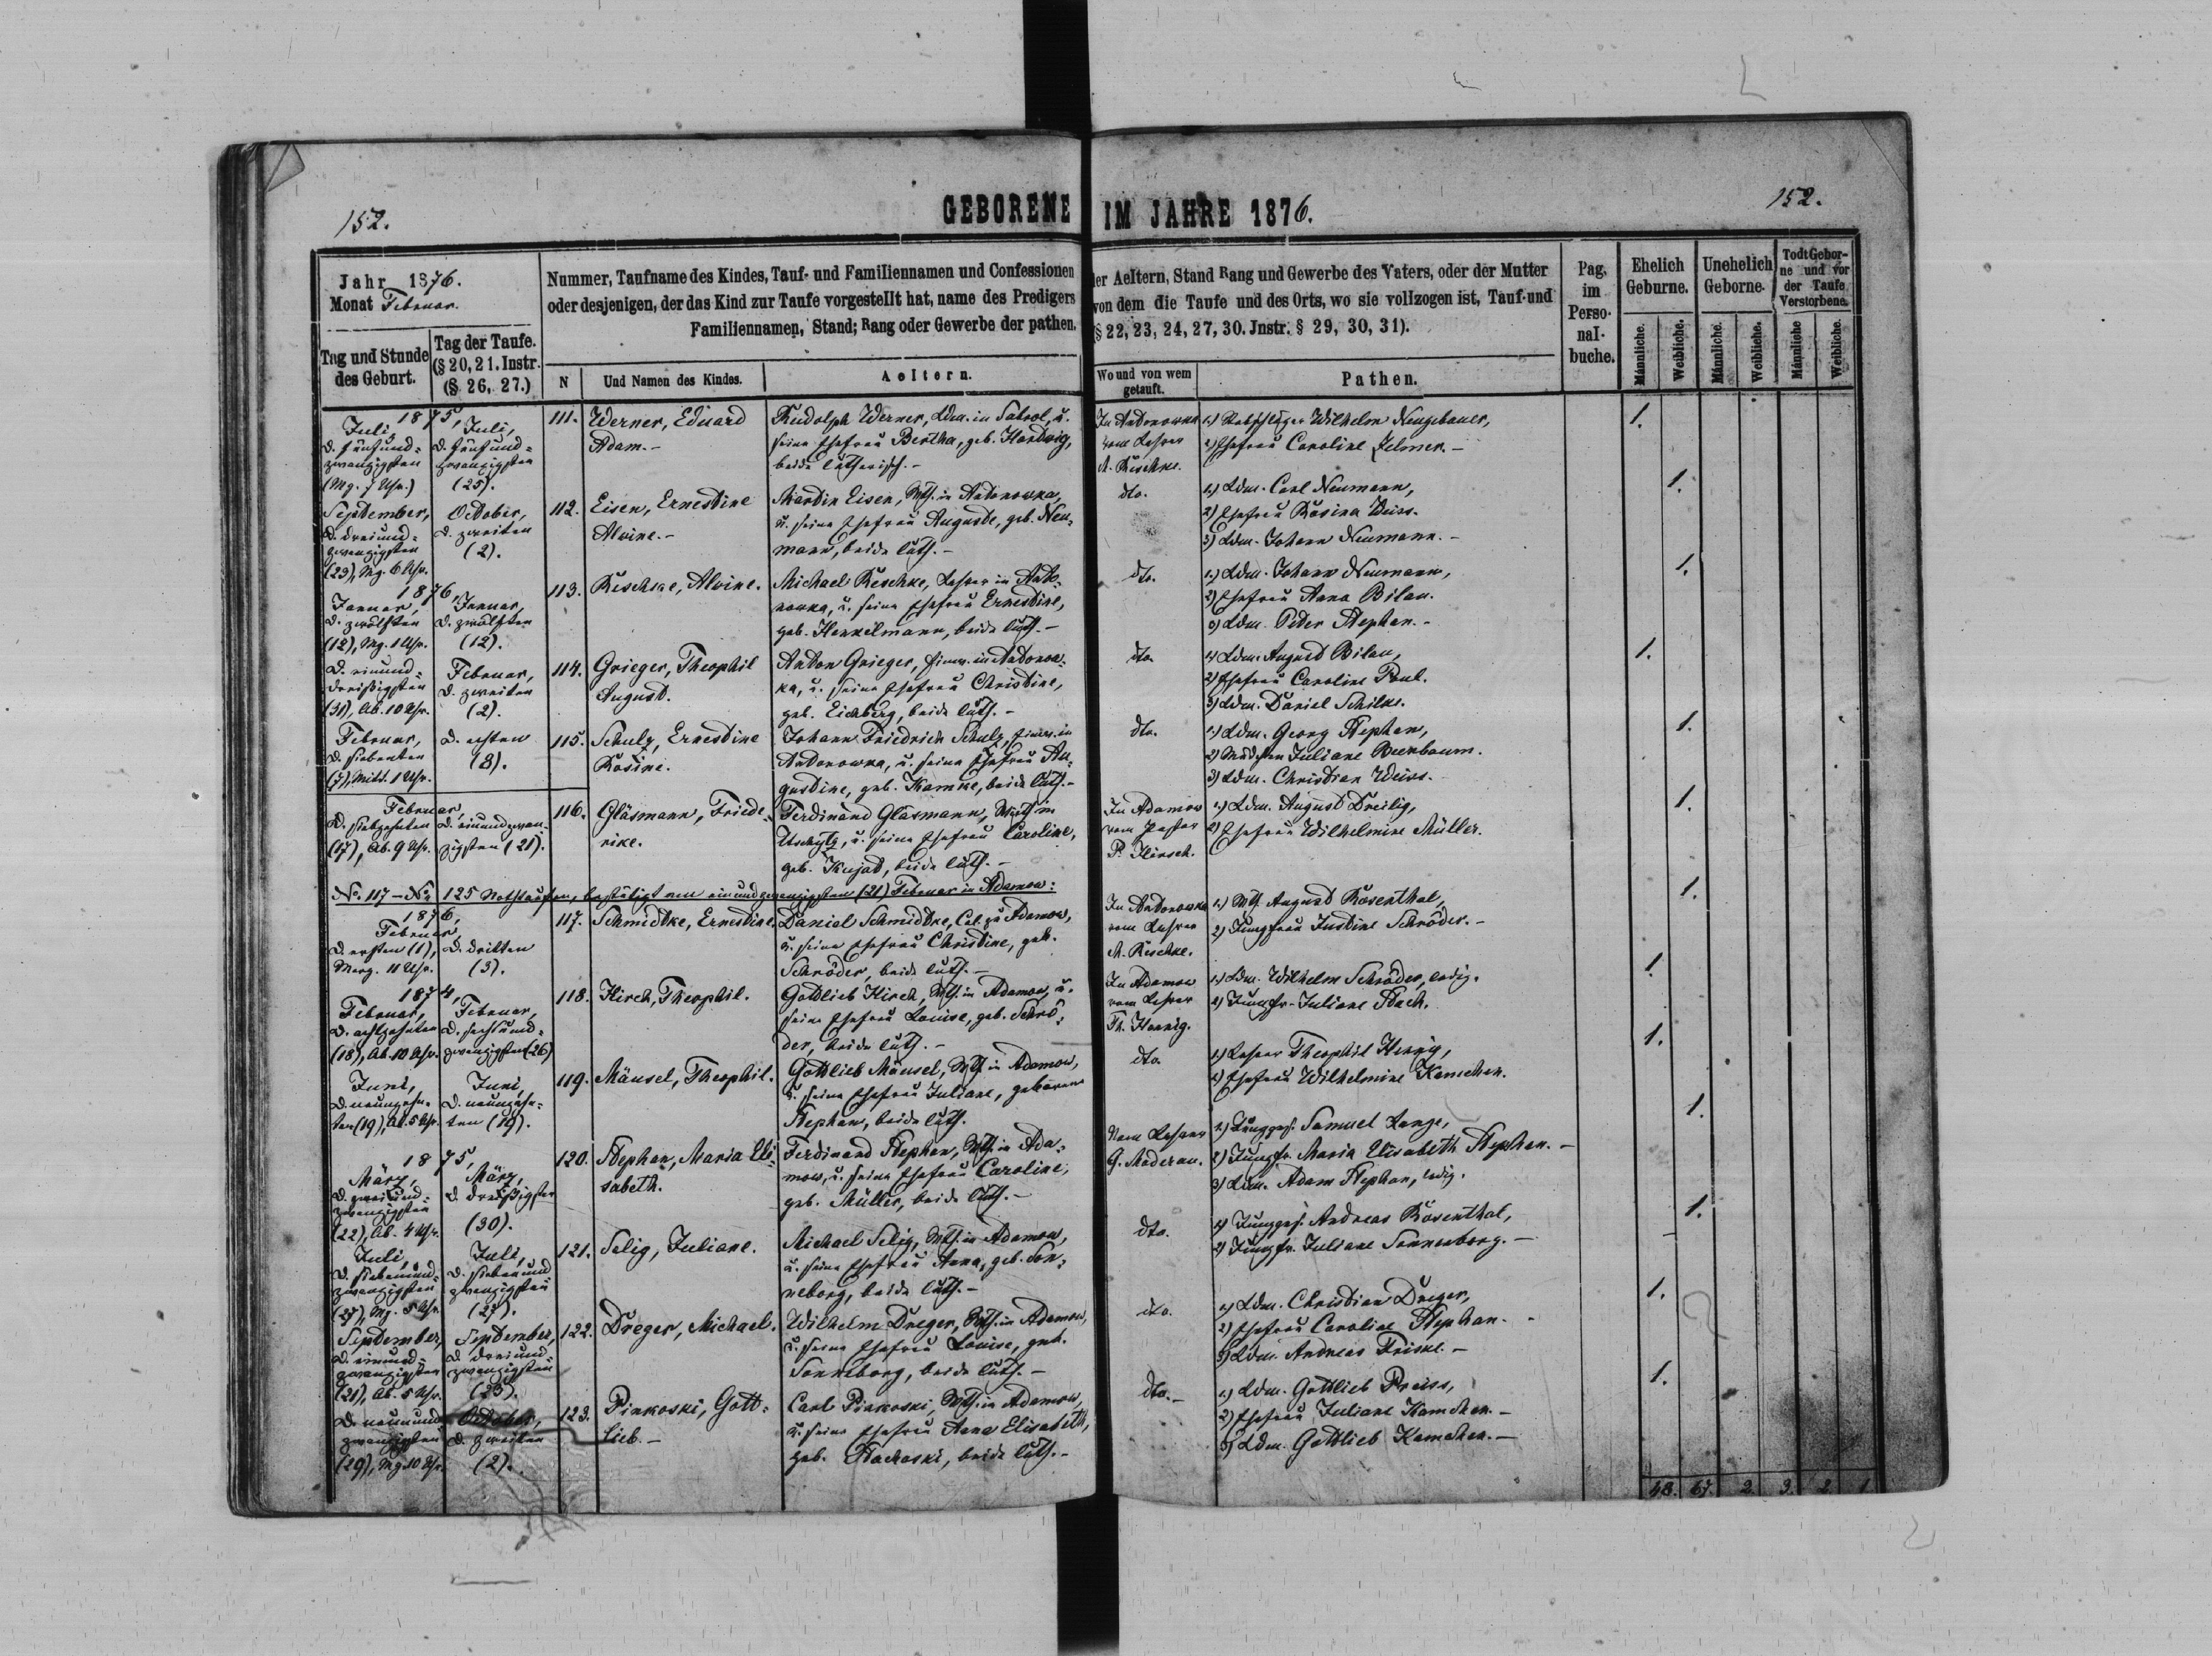 152.
GEBORENE IM JAHRE 1876.
152.
Jahr 1876.
Monat Februar.
Tag und Stunde
des Geburt.
Tag der Taufe.
(§ 20, 21. Instr.
(§ 26, 27.)
Nummer, Taufname des Kindes, Tauf- und Familiennamen und Confessionen
oder desjenigen, der das Kind zur Taufe vorgestellt hat, name des Predigers
Familiennamen, Stand; Rang oder Gewerbe der pathen.
N
Und Namen des Kindes.
Aeltern.
der Aeltern, Stand Rang und Gewerbe des Vaters, oder der Mutter
von dem die Taufe und des Orts, wo sie vollzogen ist, Tauf-und
(§ 22, 23, 24, 27, 30. Jnstr. § 29, 30, 31).
Wo und von wem
getauft.
Pathen.
Pag.
im
Perso-
nal-
buche.
Ehelich
Geburne.
Unehelich
Geborne.
Todt Gebor-
ne und vor
der Taufe
Verstorbene.
Männliche.
Weibliche.
Männliche.
Weibliche.
Männliche
Weibliche.
1875,
Juli,
d. fünfund-
zwanzigsten
(Mg. Uhr.)
Juli,
d. fünfund-
zwanzigsten
(25).
111.
Werner, Eduard
Adam.-
Rudolph Werner, Ldm. in u.
seine Ehefrau Bertha, geb. Hardwig,
beide lutherisch.-
In Antonowka
vom Lehrer
M. Reschke.
1.) Wilhelm Neugebauer,
2) Ehefrau Caroline
1.
September,
d. dreiund-
zwanzigsten
(23), Mg. 6 Uhr.
October,
d. zweiten
(2).
112.
Eisen, Ernestine
Alvine.-
Martin Eisen, Wth. in Antonowka,
u. seine Ehefrau Auguste, geb. Neu-
mann, beide luth.-
dto.
1.) Ldm. Carl Neumann,
2) Ehefrau Rosina Weiss.
3) Ldm. Johann Neumann.-
1.
1876,
Januar,
d. zwölften
(12), Mg. 1 Uhr.
Januar,
d. zwölften
(12).
113.
Reschke, Alvine.
Michael Reschke, Lehrer in Anto-
nowka, u. seine Ehefrau Ernestine,
geb. Henkelmann, beide luth.-
dto.
1.) Ldm. Johann Neumann,
2) Ehefrau Anna Bilau.
3) Ldm. Peter Stephan.-
1.
d. einund-
dreißigsten
(31), Ab. 10 Uhr.
Februar,
d. zweiten
(2).
114.
Grieger, Theophil
August.
Anton Grieger, in Antonow-
ka, u. seine Ehefrau Christine,
geb. Eichberg, beide luth.-
dto.
1.) Ldm. August Bilau,
2) Ehefrau Caroline Paul.
3) Ldm. Daniel Schilke.
1.
Februar,
d. siebenten
(7), Mitt. 1 Uhr.
d. achten
(8).
115.
Schulz, Ernestine
Rosine.
Johann Friedrich Schulz, in
Antonowka, u. seine Ehefrau Au-
gustine, geb. Kamke, beide luth.-
dto.
1.) Ldm. Georg Stephan,
2) Mädchen Juliane Beerbaum.
3) Ldm. Christian Weiss.
1.
Februar,
d. siebzehnten
(17), Ab. 9 Uhr.
d. einundzwan-
zigsten (21).
116.
Gläsmann, Friede-
rike.
Ferdinand Gläsmann, Wirth in
u. seine Ehefrau Caroline,
geb. Kujad, beide luth.-
In Adamow
vom Pastor
P. Hirsch.
1.) Ldm. August Dreilig,
2) Ehefrau Wilhelmine Müller.
1.
No. 117 - No. 125 Nothtaufen, bestätigt am einundzwanzigsten (21) Februar in Adamow:
1876,
Februar,
d. ersten (1),
Morg. 11 Uhr.
d. dritten
(3).
117.
Schmidtke, Ernestine.
Daniel Schmidtke, Col. zu Adamow,
u. seine Ehefrau Christine, geb.
Schröder, beide luth.-
In Antonowka
vom Lehrer
M. Reschke.
1.) Wth. August Rosenthal,
2) Jungfrau Justine Schröder.-
1.
1874,
Februar,
d. achtzehnten
(18), Ab. 10 Uhr.
Februar,
d. sechsund-
zwanzigsten (26)
118.
Hirch, Theophil.
Gottlieb Hirch, Wth. in Adamow, u.
seine Ehefrau Louise, geb. Schrö-
der, beide luth.-
In Adamow
vom Lehrer
Th. Hennig.
1.) Ldm. Wilhelm Schröder, ledig.
2) Jungfr. Juliane Stach.
1.
Juni,
d. neunzehn-
ten (19), Ab. 5 Uhr.
Juni,
d. neunzehn-
ten (19).
119.
Mäusel, Theophil.
Gottlieb Mäusel, Wth. in Adamow,
u. seine Ehefrau Juliane, geborene
Stephan, beide luth.
dto.
1.) Lehrer Theophil Hennig,
2) Ehefrau Wilhelmine Kamchen.
1.
1875,
März,
d. zweiund-
zwanzigsten
(22), Ab. 4 Uhr.
März,
d. dreißigsten
(30).
120.
Stephan, Maria Eli-
sabeth.
Ferdinand Stephan, Wth. in Ada-
mow, u. seine Ehefrau Caroline,
geb. Müller, beide luth.-
Vom Lehrer
G. Maderau.
1.) Junggs. Samuel Lange,
2) Jungfr. Maria Elisabeth Stephan.-
3) Ldm. Adam Stephan, ledig.
1.
Juli,
d. siebenund-
zwanzigsten
(27), Mg. 5 Uhr.
Juli,
d. siebenund
zwanzigsten
(27).
121.
Selig, Juliane.
Michael Selig, Wth. in Adamow,
u. seine Ehefrau Anna, geb. Son-
neborg, beide luth.-
dto.
1.) Junggs. Andreas Rosenthal,
2) Jungfr. Juliane Sonneborg.-
1.
September,
d. einund-
zwanzigsten
(21), Ab. 5 Uhr.
September,
d. dreiund-
zwanzigsten
(23).
122.
Dreger, Michael.
Wilhelm Dreger, Wth. in Adamow,
u. seine Ehefrau Louise, geb.
Sonneborg, beide luth.-
dto.
1.) Ldm. Christian Dreger,
2) Ehefrau Caroline Stephan.
3) Ldm. Andreas Friske.-
1.
d. neunund
zwanzigsten
(29), Mg. 10 Uhr.
October,
d. zweiten
(2).
123.
Pinkoski, Gott-
lieb.-
Carl Pinkoski, Wth. in Adamow,
u. seine Ehefrau Anna Elisabeth,
geb. Stachoski, beide luth.-
dto.-
1.) Ldm. Gottlieb Preiss,
2) Ehefrau Juliane Kamchen.-
3) Ldm. Gottlieb Kamchen.-
1.
48. 67. 2. 3. 2. 1